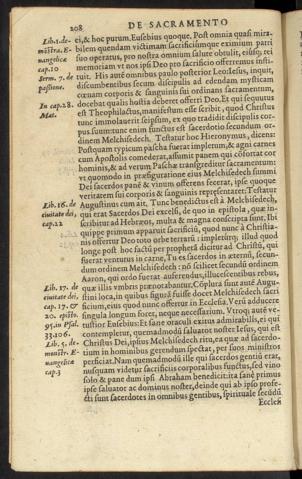 208
DE SACRAMENTO
Lib.1.de-
mōstra. E-
uangelicæ
cap.10
Serm. 7. de
passione.
In cap.28.
Mat.
Lib. 16. de
ciuitate dei,
cap.22
Lib. 17. de
ciuitate dei,
cap. 17. &
20. epist.
95. in Psal.
33.106.
Lib. 5. de-
monstr. E-
uangelicæ
cap.3
ei, & hoc purum. Eusebius quoque. Post omnia quasi mira-
bilem quendam victimam sacrificiumque eximium patri
suo operatus, pro nostra omnium salute obtulit, eiusq; rei
memoriam vt nos ipsi Deo pro sacrificio offerremus insti-
tuit. His autē omnibus paulo posterior Leo: Iesus, inquit,
discumbentibus secum discipulis ad edendam mysticam
cœnam corporis & sanguinis sui ordinans sacramentum,
docebat qualis hostia deberet offerri Deo. Et qui sequutus
est Theophilactus, manifestum esse scribit, quod Christus
tunc immolauerit seipsum, ex quo tradidit discipulis cor-
pus suum: tunc enim functus est sacerdotio secundum or-
dinem Melchisedech. Testatur hoc Hieronymus, dicens:
Postquam typicum pascha fuerat impletum, & agni carnes
cum Apostolis comederat, assumit panem qui cōfortat cor
hominis, & ad verum Paschæ transgreditur sacramentum:
vt quomodo in præfiguratione eius Melchisedech summi
Dei sacerdos panē & vinum offerens fecerat, ipse quoque
veritatem sui corporis & sanguinis repræsentaret: Testatur
Augustinus cum ait. Tunc benedictus est à Melchisedech,
qui erat Sacerdos Dei excelsi, de quo in epistola, quæ in-
scribitur ad Hebræos, multa & magna conscripta sunt. Ibi
quippe primum apparuit sacrificiū, quod nunc à Christia-
nis offertur Deo toto orbe terrarū: impletūq; illud quod
longe post hoc factū per prophetā dicitur ad Christū, qui
fuerat venturus in carne, Tu es sacerdos in æternū, secun-
dum ordinem Melchisedech: nō scilicet secundū ordinem
Aaron, qui ordo fuerat auferendus, illucescentibus rebus,
quæ illis vmbris prænotabantur. Cōplura sunt autē Augu-
stini loca, in quibus figurā fuisse docet Melchisedech sacri
ficium, eius quod nunc offertur in Ecclesia. Verū adducere
singula longum foret, neque necessarium. Vtroq; autē ve-
tustior Eusebius: Et sane oraculi exitus admirabilis, ei qui
contempletur, quemadmodū saluator noster Iesus, qui est
Christus Dei, ipsius Melchisedech ritu, ea quæ ad sacerdo-
tium in hominibus gerendum spectāt, per suos ministros
perficiat. Nam quemadmodū ille qui sacerdos gentiū erat,
nusquam videtur sacrificiis corporalibus functus, sed vino
solo & pane dum ipsi Abraham benedicit: ita sanè primus
ipse saluator ac dominus noster, deinde qui ab ipso profe-
cti sunt sacerdotes in omnibus gentibus, spirituale secūdū
Ecclesi